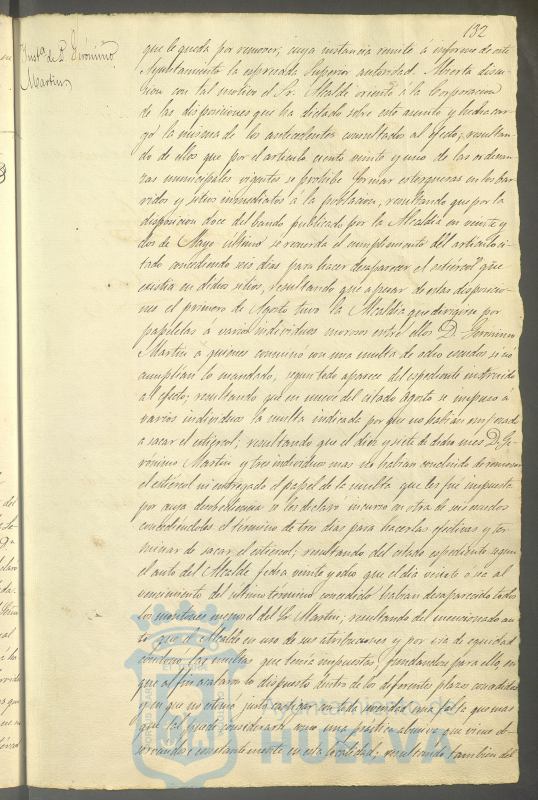 132
Inst.ª de D. Gerónimo
Martin
que le queda por remover; cuya instancia remite á informe de este
Ayuntamiento la espresada Superior autoridad. Abierta discu-
sion con tal motivo el Sr. Alcalde orientó á la Corporacion
de las disposiciones que ha dictado sobre este asunto y hecha car-
gó la misma de los antecedentes consultados al efecto; resultan-
do de ellos que por el articulo ciento veinte y uno de las ordenan-
zas municipales vigentes se prohibe formar estercoleras en los bar-
rios y sitios inmediatos á la poblacion, resultando que por la
disposicion doce del bando publicado por la Alcaldia en veinte y
dos de Mayo último se recuerda el cumplimiento del articulo ci-
tado concediendo seis dias para hacer desaparecer el estiercol que
existia en dichos sitios, resultando que apesar de estas disposicio-
nes el primero de Agosto tuvo la Alcaldia que dirigirse por
papeletas á varios individuos morosos entre ellos D. Gerónimo
Martin á quienes conminó con una multa de ocho escudos si no
cumplian lo mandado, segun todo aparece del espediente instruido
al efecto; resultando que en nueve del citado Agosto se impuso á
varios individuos la multa indicada por que no habian empezado
á sacar el estiercol; resultando que el diez y siete de dicho mes D. Ge-
rónimo Martin y tres individuos mas no habian concluido de remover
el estiercol ni entregado el papel de la multa que les fué impuesta
por cuya desobediencia se les declaró incurso en otra de seis escudos
concediendoles el término de tres dias para hacerlas efectivas y ter-
minar de sacar el estiercol; resultando del citado espediente segun
el auto del Alcalde fecha veinte y ocho que el dia veinte ó sea al
vencimiento del último termino concedido habian desaparecido todos
los montones menos el del Sr. Martin; resultando del mencionado au-
to que el Alcalde en uso de sus atribuciones y por via de equidad
condonó las multas que tenia impuestas, fundandose para ello en
que al fin acataron lo dispuesto dentro de los diferentes plazos concedidos
y en que no estimó justo castigar con todo una falta que mas
que tal puede considerarse como una práctica abusiva que viene ob-
servandose constantemente en esta localidad; resultando tambien del